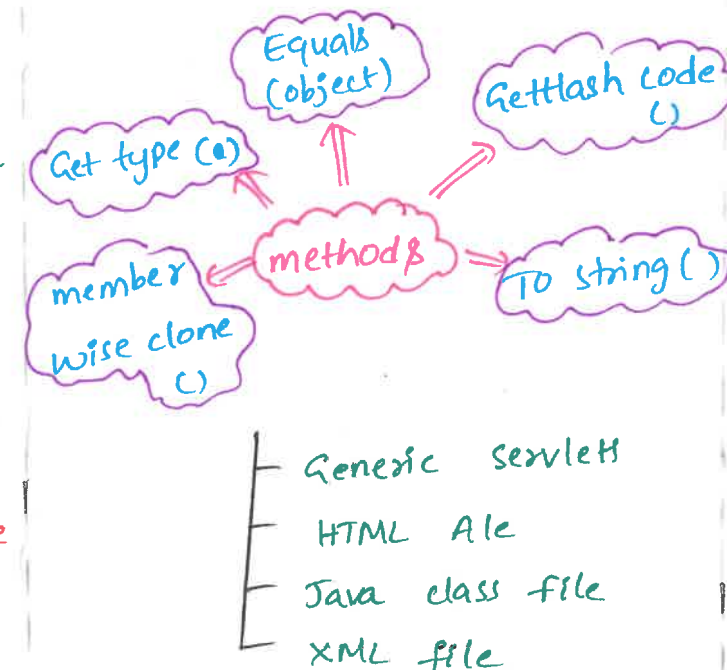 Equals
(object)
GetHash code
()
Get type (a)
methods
To string ()
member
wise clone
()
Generic servlets
HTML Ale
Java class file
XML file